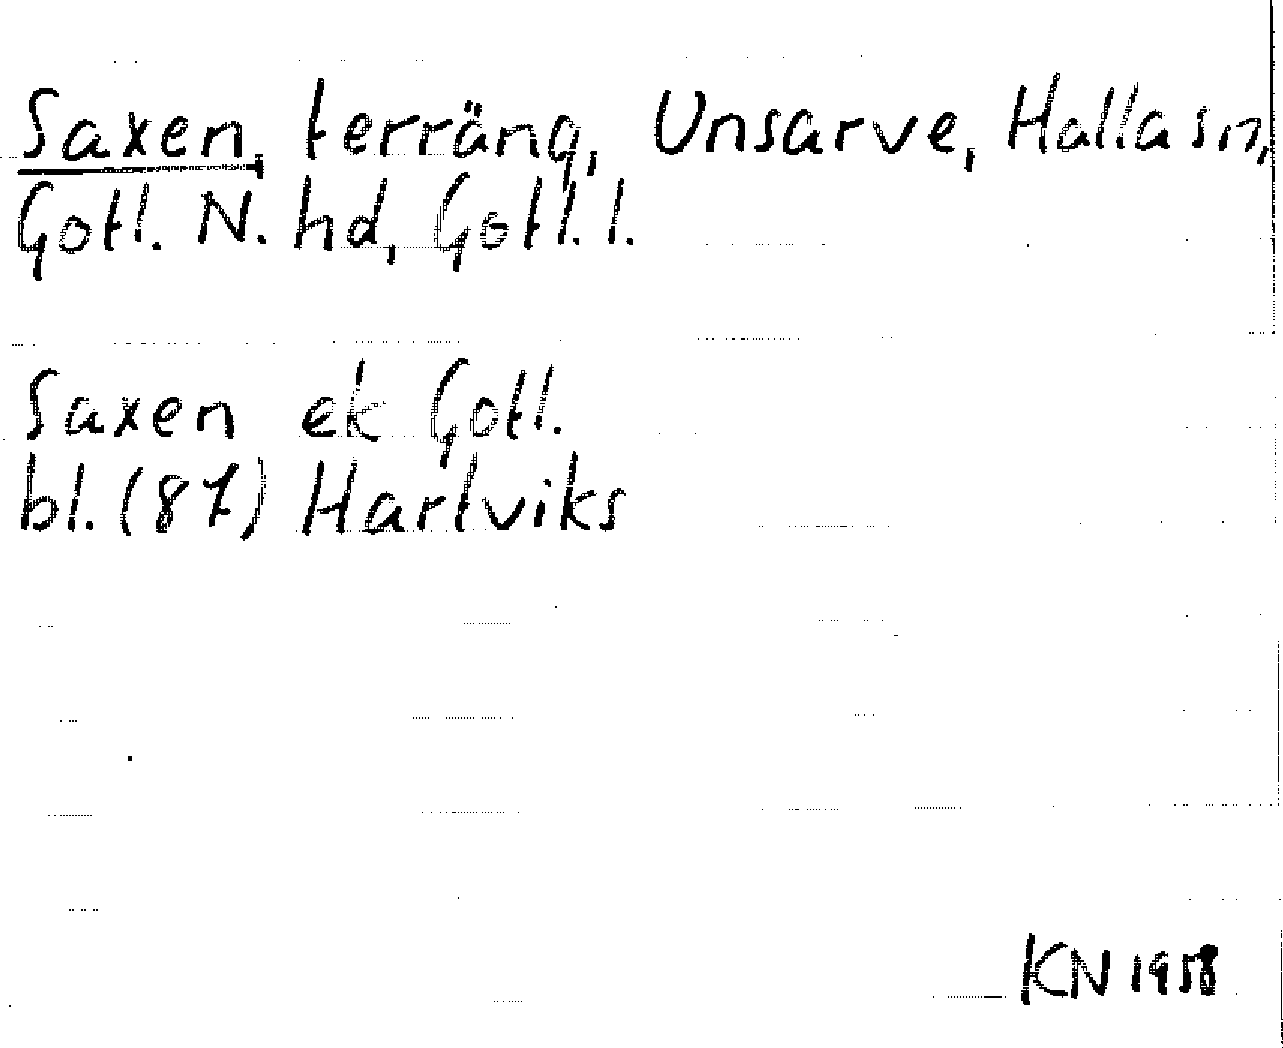 Saxen, terräng, Unsarve, Halla sn,
Gotl. N. hd, Gotl. l.
Saxen ek Gotl.
bl. (87) Hartviks
KN 1958